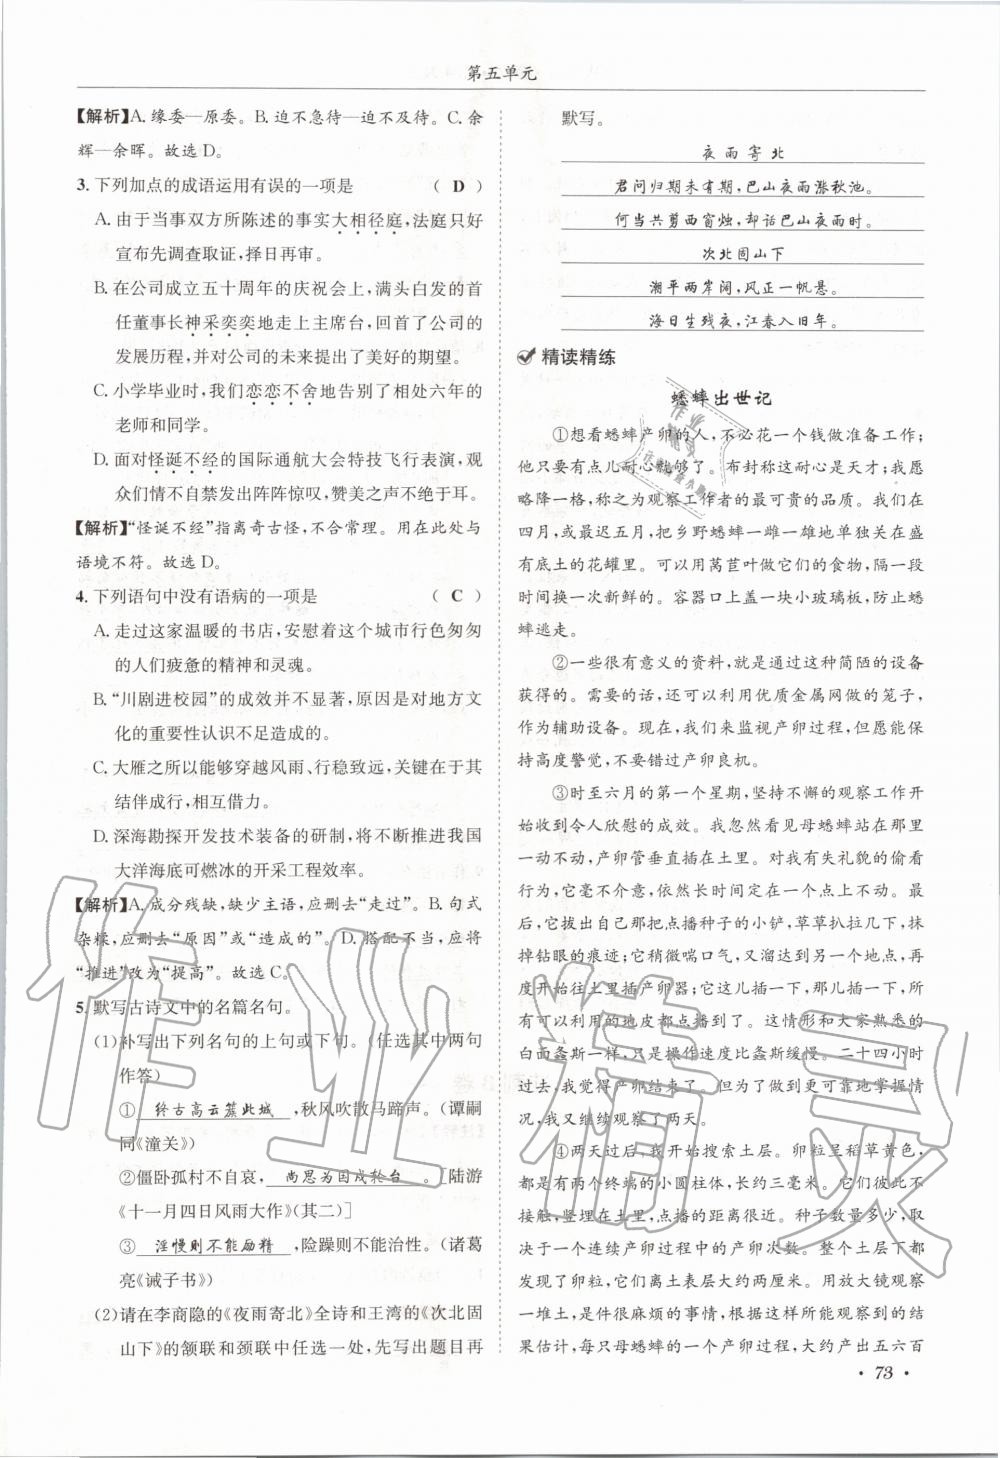 第五单元
【解析】A. 缘委—原委。B. 迫不急待—迫不及待。C. 余
辉—余晖。故选 D。
3. 下列加点的成语运用有误的一项是 （ D ）
A. 由于当事双方所陈述的事实大相径庭,法庭只好
宣布先调查取证,择日再审。
B. 在公司成立五十周年的庆祝会上,满头白发的首
任董事长神采奕奕地走上主席台,回首了公司的
发展历程,并对公司的未来提出了美好的期望。
C. 小学毕业时,我们恋恋不舍地告别了相处六年的
老师和同学。
D. 面对怪诞不经的国际通航大会特技飞行表演,观
众们情不自禁发出阵阵惊叹,赞美之声不绝于耳。
【解析】“怪诞不经”指离奇古怪,不合常理。用在此处与
语境不符。故选 D。
4. 下列语句中没有语病的一项是 （ C ）
A. 走过这家温暖的书店,安慰着这个城市行色匆匆
的人们疲惫的精神和灵魂。
B. “川剧进校园”的成效并不显著,原因是对地方文
化的重要性认识不足造成的。
C. 大雁之所以能够穿越风雨、行稳致远,关键在于其
结伴成行,相互借力。
D. 深海勘探开发技术装备的研制,将不断推进我国
大洋海底可燃冰的开采工程效率。
【解析】A. 成分残缺,缺少主语,应删去“走过”。B. 句式
杂糅,应删去“原因”或“造成的”。D. 搭配不当,应将
“推进”改为“提高”。故选 C。
5. 默写古诗文中的名篇名句。
(1)补写出下列名句的上句或下句。(任选其中两句
作答)
① 终古高云簇此城 ,秋风吹散马蹄声。(谭嗣
同《潼关》)
②僵卧孤村不自哀, 尚思为国戍轮台 。[陆游
《十一月四日风雨大作》(其二)]
③ 淫慢则不能励精 ,险躁则不能治性。(诸葛
亮《诫子书》)
(2)请在李商隐的《夜雨寄北》全诗和王湾的《次北固
山下》的颔联和颈联中任选一处,先写出题目再
默写。
夜雨寄北
君问归期未有期,巴山夜雨涨秋池。
何当共剪西窗烛,却话巴山夜雨时。
次北固山下
潮平两岸阔,风正一帆悬。
海日生残夜,江春入旧年。
精读精练
蟋蟀出世记
①想看蟋蟀产卵的人,不必花一个钱做准备工作;
他只要有点儿耐心就够了。布封称这耐心是天才;我愿
略降一格,称之为观察工作者的最可贵的品质。我们在
四月,或最迟五月,把乡野蟋蟀一雌一雄地单独关在盛
有底土的花罐里。可以用莴苣叶做它们的食物,隔一段
时间换一次新鲜的。容器口上盖一块小玻璃板,防止蟋
蟀逃走。
②一些很有意义的资料,就是通过这种简陋的设备
获得的。需要的话,还可以利用优质金属网做的笼子,
作为辅助设备。现在,我们来监视产卵过程,但愿能保
持高度警觉,不要错过产卵良机。
③时至六月的第一个星期,坚持不懈的观察工作开
始收到令人欣慰的成效。我忽然看见母蟋蟀站在那里
一动不动,产卵管垂直插在土里。对我有失礼貌的偷看
行为,它毫不介意,依然长时间定在一个点上产卵。最
后,它拔出自己那把点播种子的小铲,草草扒拉几下,抹
掉钻眼的痕迹;它稍微喘口气,又溜达到另一个地点,开
始继续往土里插产卵器;它这儿插一下,那儿插一下,所
有可以利用的地皮都点播到了。这情形和大家熟悉的
白面螽斯一样,只是操作速度比螽斯缓慢。二十四小时
过去,我觉得产卵结束了。但为了做到更可靠地掌握情
况,我又继续观察了两天。
④两天过后,我开始搜索土层。卵粒呈稻草黄色,
都是有两个终端的小圆柱体,长约三毫米。它们彼此不
接触,竖埋在土里,点播的很近。种子数量多少,取
决于一个连续产卵过程中的产卵次数。整个土层下都
发现了卵粒,它们距离土表层大约两厘米。用放大镜观察
一堆土,是件很麻烦的事情,根据这样所能观察到的
结果估计,每只母蟋蟀的一个产卵过程,大约产出五六百
• 73 •
作业精灵